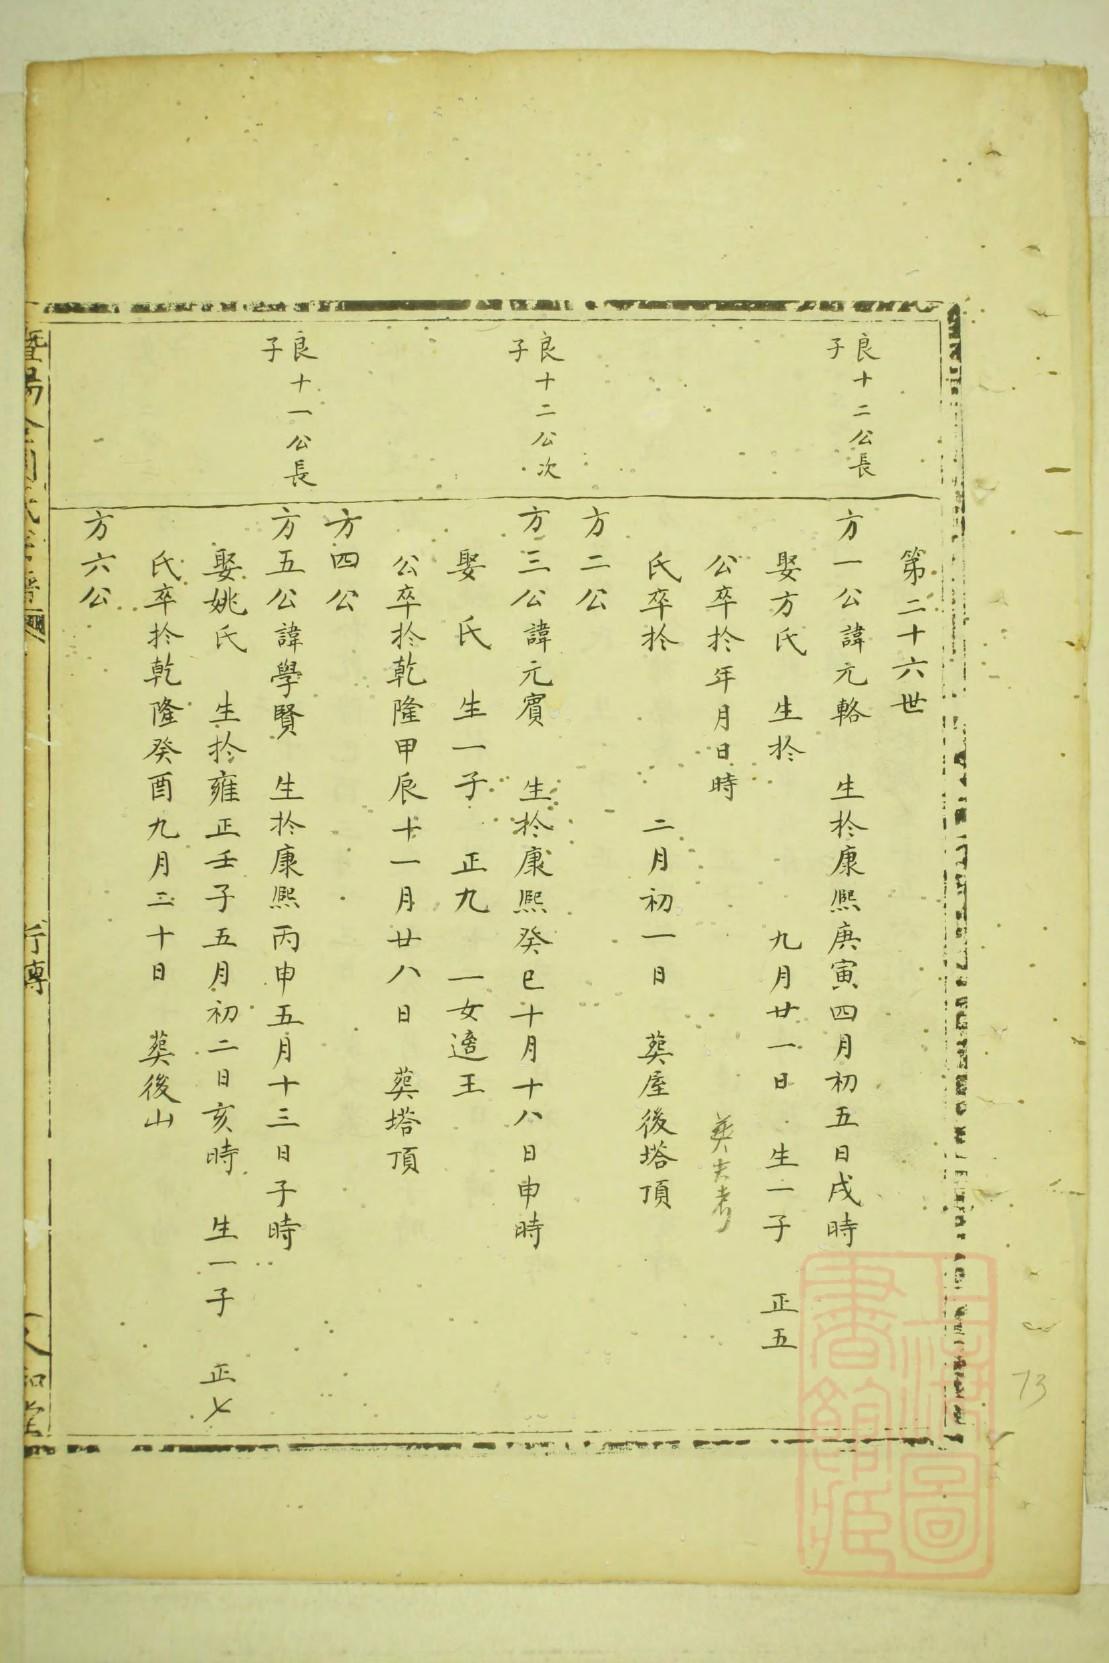 第二十六世
良十二公長
子
方一公諱元輅 生扵康熈庚寅四月初五日戌時
娶方氏 生扵 九月廿一日 生一子 正五
公卒扵年月日時 葬夫考
氏卒扵 二月初一日 葬屋後塔頂
方二公
良十二公次
子
方三公諱元賓 生扵康熈癸巳十月十八日申時
娶 氏 生一子 正九 一女適王
公卒扵乾隆甲辰十一月廿八日 葬塔頂
方四公
良十一公長
子
方五公諱學賢 生扵康熈丙申五月十三日子時
娶姚氏 生扵雍正壬子五月初二日亥時 生一子 正七
氏卒扵乾隆癸酉九月二十日 葬後山
方六公
暨陽
行傳
和堂
上海圖
書館藏
73